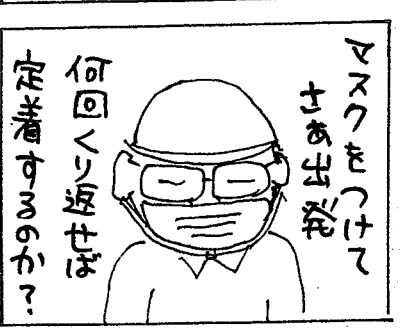 マスクをつけて
さあ出発
何回くり返せば
定着するのか？